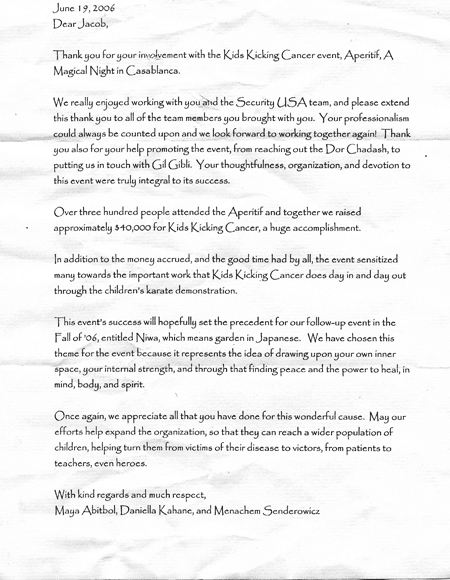 June 19, 2006
Dear Jacob,
Thank you for your involvement with the Kids Kicking Cancer event, Aperitif, A
Magical Night in Casablanca.
We really enjoyed working with you and the Security USA team, and please extend
this thank you to all of the team members you brought with you. Your professionalism
could always be counted upon and we look forward to working together again! Thank
you also for your help promoting the event, from reaching out the Dor Chadash, to
putting us in touch with Gil Gibli. Your thoughtfulness, organization, and devotion to
this event were truly integral to its success.
Over three hundred people attended the Aperitif and together we raised
approximately $40,000 for Kids Kicking Cancer, a huge accomplishment.
In addition to the money accrued, and the good time had by all, the event sensitized
many towards the important work that Kids Kicking Cancer does day in and day out
through the children's karate demonstration.
This event's success will hopefully set the precedent for our follow-up event in the
Fall of '06, entitled Niwa, which means garden in Japanese. We have chosen this
theme for the event because it represents the idea of drawing upon your own inner
space, your internal strength, and through that finding peace and the power to heal, in
mind, body, and spirit.
Once again, we appreciate all that you have done for this wonderful cause. May our
efforts help expand the organization, so that they can reach a wider population of
children, helping turn them from victims of their disease to victors, from patients to
teachers, even heroes.
With kind regards and much respect,
Maya Abitbol, Daniella Kahane, and Menachem Senderowicz